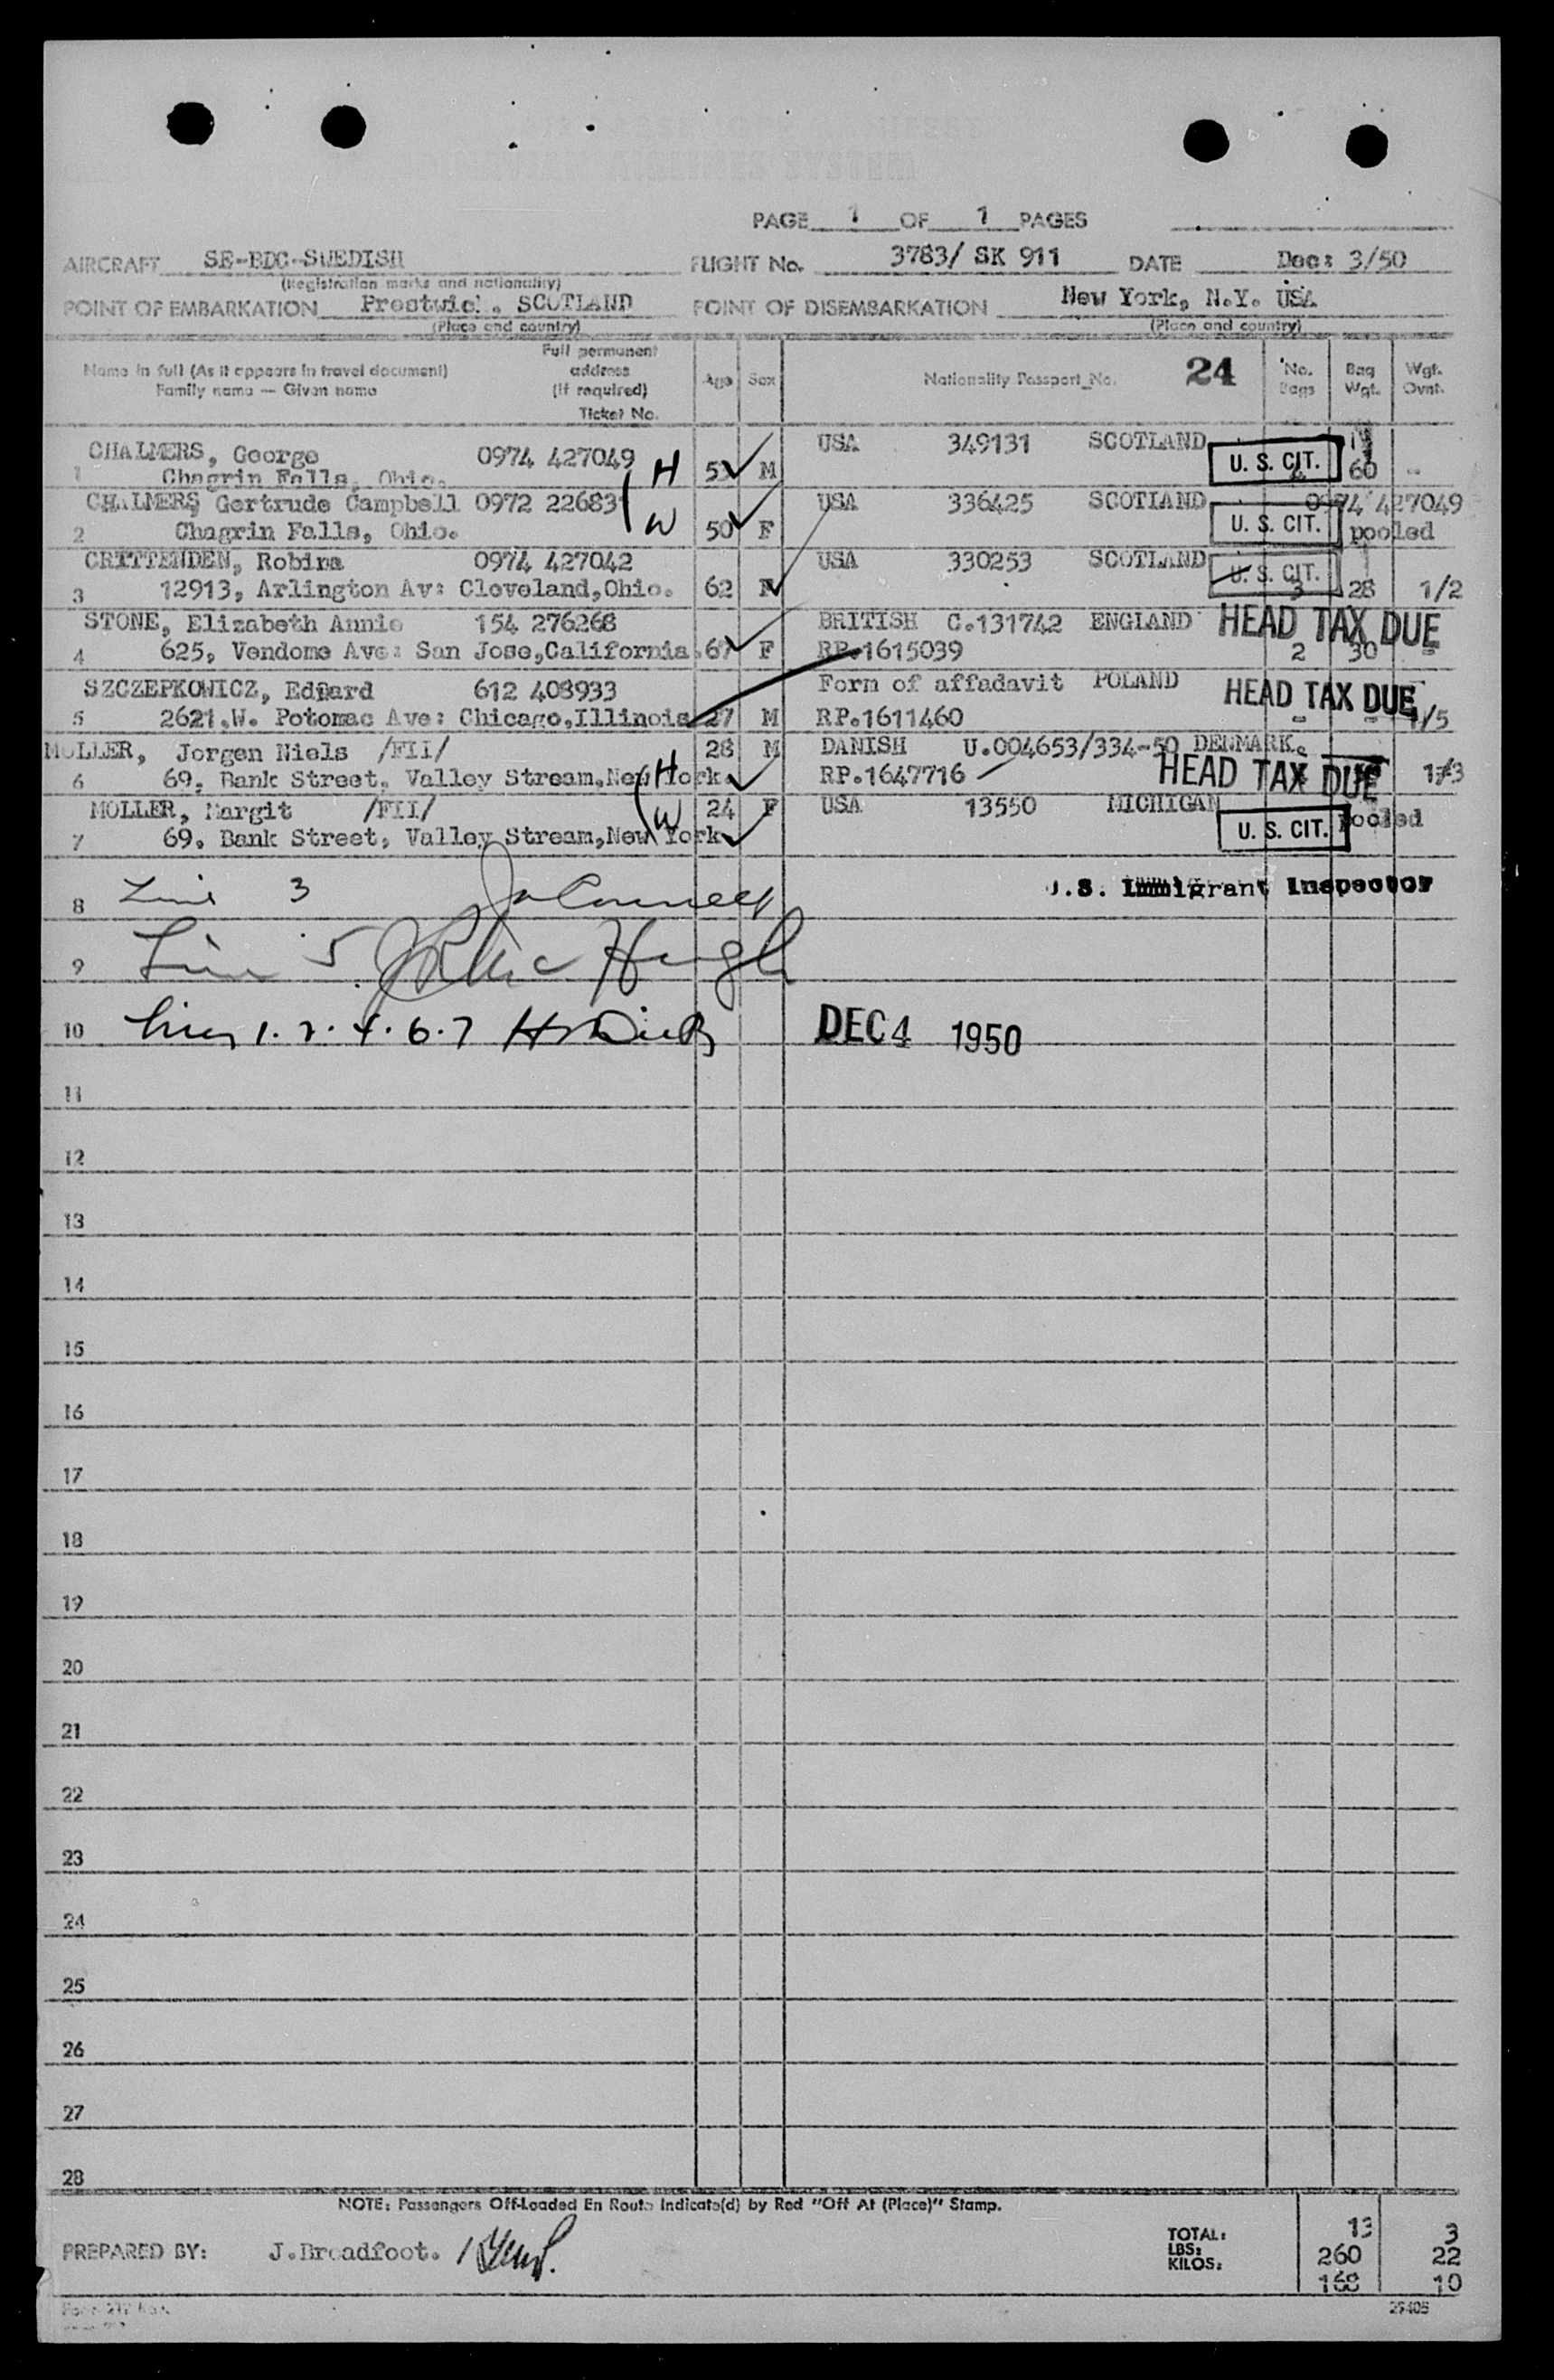 PAGE 1 OF 1 PAGES
AIRCRAFT SE-BDC-SWEDISH FLIGHT No. 3783/ SK 911 DATE Dec: 3/50
(Registration marks and nationality)
POINT OF EMBARKATION Prestwick, SCOTLAND POINT OF DISEMBARKATION New York, N.Y. USA
(Place and country) (Place and country)
Name in full (As it appears in travel document) Family name — Given name Full permanent address (If required) Ticket No. Age Sex Nationality Passport No. 24 No. Bags Bag Wgt. Wgt. Ovnt.
CHALMERS, George 0974 427049 H USA 349131 SCOTLAND U. S. CIT.
1 Chagrin Falls, Ohio. M 60 -
CHALMERS Gertrude Campbell 0972 22683 USA 336425 SCOTLAND 0974 427049
2 Chagrin Falls, Ohio. W 50 F U. S. CIT. pooled
CRITTENDEN, Robina 0974 427042 USA 330253 SCOTLAND U. S. CIT.
3 12913, Arlington Av: Cleveland,Ohio. 62 F 3 28 1/2
STONE, Elizabeth Annie 154 276268 BRITISH C.131742 ENGLAND HEAD TAX DUE
4 625, Vendome Ave: San Jose,California. 67 F RP.1615039 2 30 -
SZCZEPKOWICZ, Edward 612 408933 Form of affadavit POLAND HEAD TAX DUE
5 2621.W. Potomac Ave: Chicago,Illinois 27 M RP.1611460 - - 1/5
MOLLER, Jorgen Niels /FII/ 28 M DANISH U.004653/334-50 DENMARK.
6 69, Bank Street, Valley Stream,New York. H RP.1647716 HEAD TAX DUE 1/3
MOLLER, Margit /FII/ 24 F USA 13550 MICHIGAN pooled
7 69, Bank Street, Valley Stream,New York W U. S. CIT.
8 Line 3 U.S. Immigrant Inspector
9 Line 5
10 Lines 1. 2. 4. 6. 7 DEC 4 1950
11
12
13
14
15
16
17
18
19
20
21
22
23
24
25
26
27
28
NOTE: Passengers Off-Loaded En Route Indicate(d) by Red "Off At (Place)" Stamp.
TOTAL: 13 3
PREPARED BY: J.Broadfoot. LBS: 260 22
KILOS: 168 10
29405